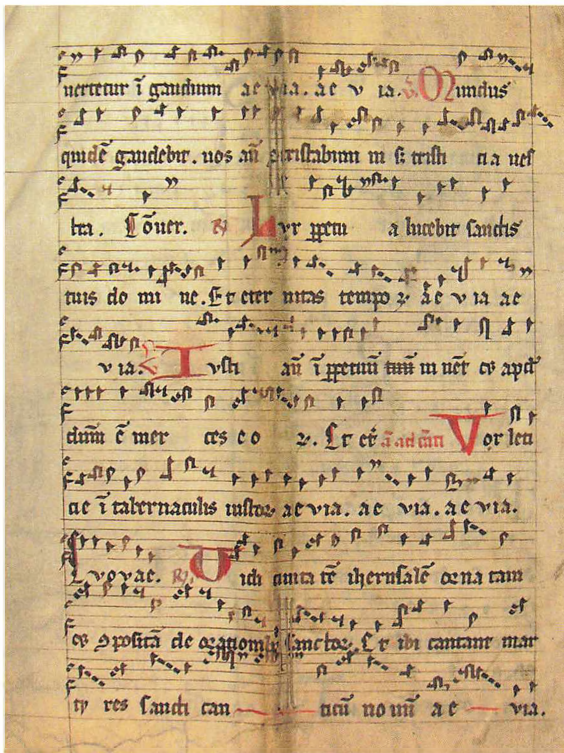 uertetur ī gaudium ae via. ae v ia. ℣ Mundus
quidē gaudebit. uos aū tristabim in s; tristi cia ues
tra. Cōuer. ℟ Lux ꝑpetu a lucebit sanctis
tuis do mi ne. Et eter nitas tempoꝝ ae via ae
via. ℣ Iusti aū ī ꝑpetuū in uēt es apᵈ
dūm ē mer ces e o ꝝ. Et et̄ ā ad cāti Vox leti
cie ī tabernaculis iustoꝝ ae via. ae via. ae via.
Evovae. ℟ Vidi ciuita tē iherusalē orna tam
ꝯpositā de orationibꝫ sanctoꝝ. Et ibi cantant mar
ty res sancti can ticū no uū a e via.